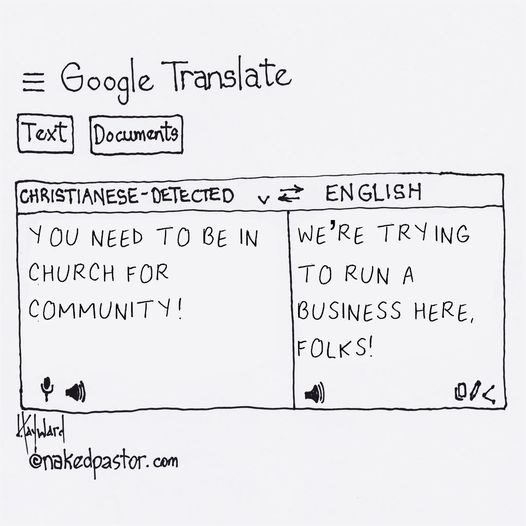 Google Translate
Text Documents
CHRISTIANESE-DETECTED ENGLISH
YOU NEED TO BE IN
CHURCH FOR
COMMUNITY!
WE'RE TRYING
TO RUN A
BUSINESS HERE,
FOLKS!
Hayward
©nakedpastor.com